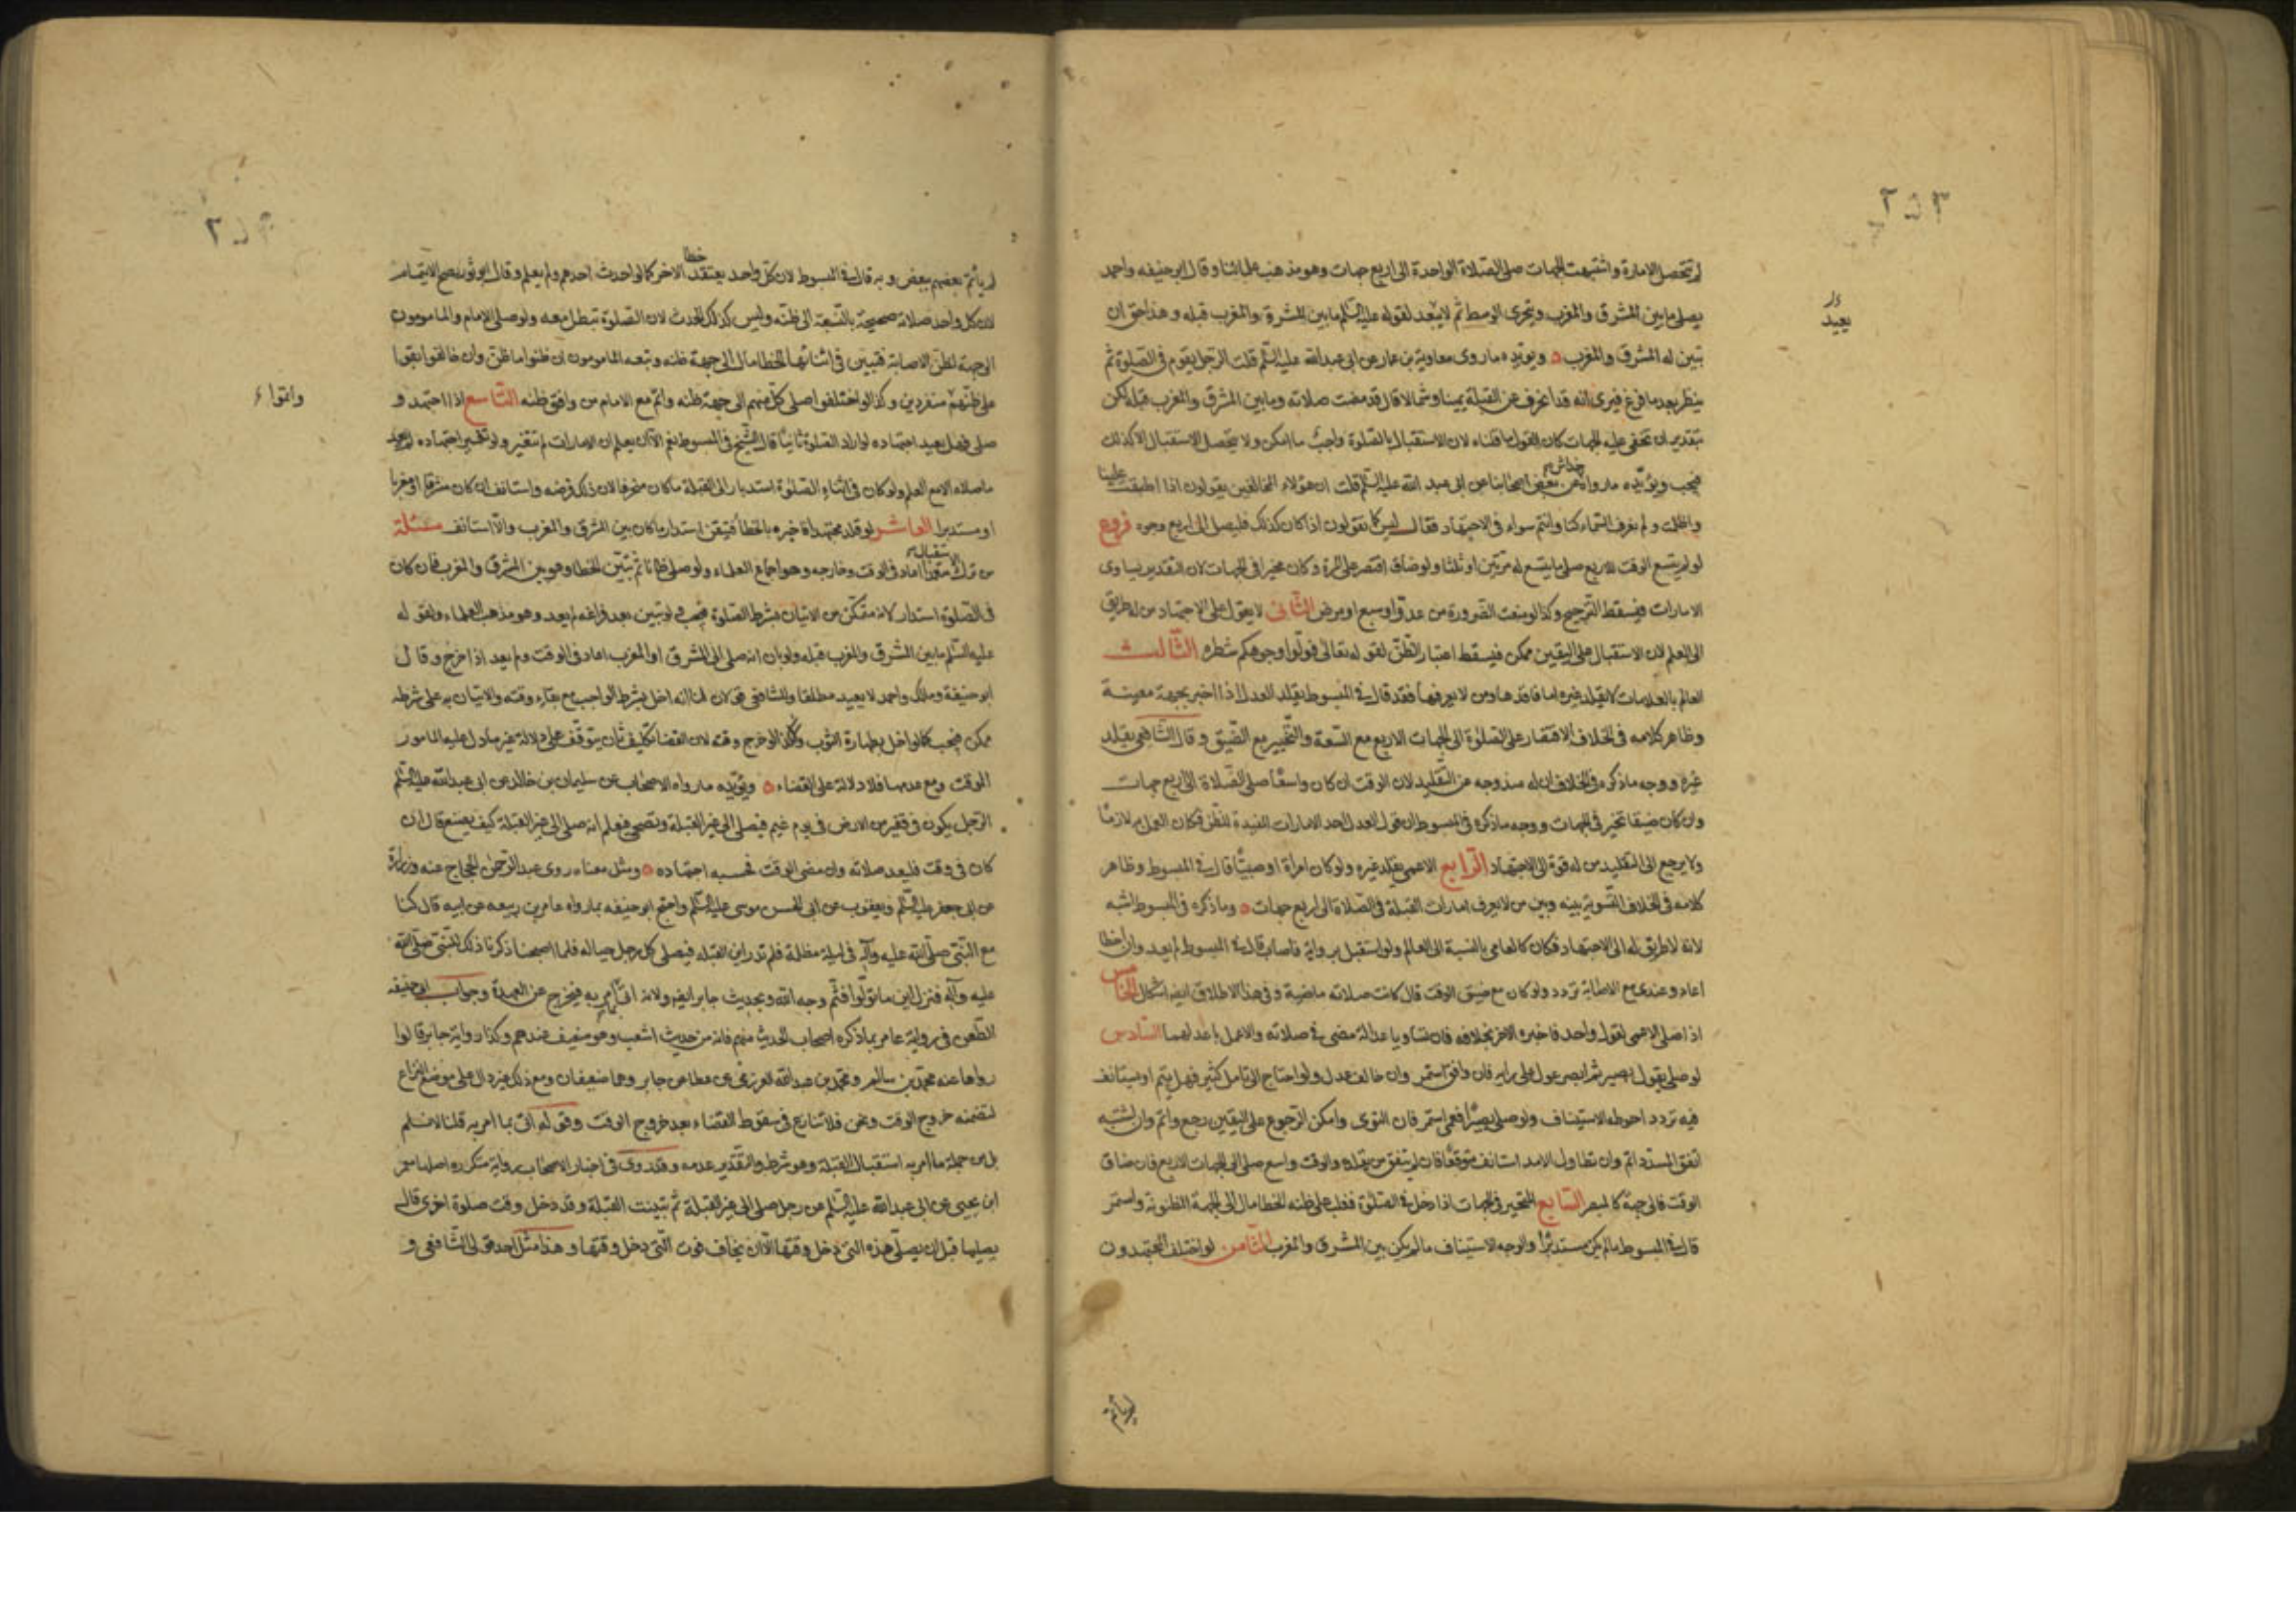 ٢٥٣
لم تحصل الامارة واشتبهت الجهات صلى الصلاة الواحدة الى اربع جهات وهو مذهب علمائنا وقال ابو حنيفه واحمد
يصلي ما بين المشرق والمغرب ويتحرى الوسط ثم لا يعد لقوله عليه السلم ما بين المشرق والمغرب قبله وهذا حق ان
يعيد
تبين له المشرق والمغرب ويؤيده ما روى معاوية بن عمار عن ابى عبدالله عليه السلم قلت الرجل يقوم في الصلوة ثم
ينظر بعد ما فرغ فيرى انه قد انحرف عن القبلة يمينا وشمالا قال قد مضت صلاته وما بين المشرق والمغرب قبلة لكن
بتقدير ان تخفى عليه الجهات كان القول ما قلناه لان الاستقبال بالصلوة واجب ما امكن ولا يتحصل الاستقبال الا كذلك
فيجب ويؤيده ما رواه خداش عن بعض اصحابنا عن ابى عبد الله عليه السلم قلت ان هؤلاء المخالفين يقولون اذا اطبقت علينا
واظلمت ولم نعرف السماء كنا وانتم سواء في الاجتهاد فقال ليس كما يقولون اذا كان كذلك فليصل الى اربع وجوه فروع
لو لم يتسع الوقت للاربع صلى ما يتسع له مرتين او ثلثا ولو ضاق اقتصر على المرة وكان مخيرا في الجهات لان التقدير تساوى
الامارات فيسقط الترجيح وكذا لو منعت الضرورة من عدو او سبع او مرض الثانى لا يعول على الاجتهاد من له طريق
الى العلم لان الاستقبال على اليقين ممكن فيسقط اعتبار الظن لقوله تعالى فولوا وجوهكم شطره الثالث
العالم بالعلامات لا يقلد غيره اما فاقدها ومن لا يعرفها فقد قال في المبسوط يقلد العدل اذا اخبر بجهة معينة
وظاهر كلامه في الخلاف الاقتصار على الصلوة الى الجهات الاربع مع السعة والتخيير مع الضيق وقال الشافعى يقلد
غيره ووجه ماذكره في الخلاف ان له مندوحه عن التقليد لان الوقت ان كان واسعا صلى الصلاة الى اربع جهات
وان كان ضيقا تخير في الجهات ووجه ماذكره في المبسوط ان قول العدل احد الامارات المفيدة للظن فكان العمل به لازما
ولا يرجع الى التقليد من له قوة الى الاجتهاد الرابع الاعمى يقلد غيره ولو كان امرأة او صبيا قال في المبسوط وظاهر
كلامه في الخلاف التسوية بينه وبين من لا يعرف امارات القبلة في الصلاة الى اربع جهات وماذكره في المبسوط اشبه
لانه لا طريق له الى الاجتهاد فكان كالعامي بالنسبة الى العالم ولو استقبل برواية فاصاب قال في المبسوط لم يعد وان اخطا
اعاد وعندى مع الاصابة تردد ولو كان مع ضيق الوقت قال كانت صلاته ماضية وفي هذا الاطلاق ايضا اشكال الخامس
اذا صلى الاعمى لقول واحد فاخبره الاخر بخلافه فان تساويا عدالة مضى في صلاته والا عمل باعدلهما السادس
لو صلى بقول بصير ثم ابصر عول على رايه فان وافق استمر وان خالف عدل ولو احتاج الى تامل كثير فهل يتم او يستانف
فيه تردد احوطه الاستيناف ولو صلى بصيرا فعمى استمر فان التوى وامكن الرجوع على اليقين رجع واتم وان اشتبه
اتفق المسدد اتم وان تطاول الامد استانف متوقعا فان لم يتفق من يقلده والوقت واسع صلى الى الجهات الاربع فان ضاق
الوقت فالى جهة كالمبصر السابع المتحير في الجهات اذا دخل في الصلوة فغلب على ظنه الخطا مال الى الجهة المظنونة واستمر
قال في المبسوط ما لم يكن مستدبرا والوجه الاستيناف ما لم يكن بين المشرق والمغرب الثامن لو اختلف المجتهدون
لم يأتم
لم يأتم بعضهم ببعض وبه قال في المبسوط لان كل واحد يعتقد خطا الاخر كما لو احدث احدهم ولم يعلم وقال ابو ثور يصح الايتمام
لان كل واحد صلاته صحيحة بالنسبة الى ظنه وليس كذلك الحدث لان الصلوة تبطل معه ولو صلى الامام والمامومون
الى جهة لظن الاصابة فتبين في اثنائها الخطا مال الى جهة ظنه وتبعه المامومون ان ظنوا ما ظن وان خالفوا بقوا
على ظنهم منفردين وكذا لو اختلفوا صلى كل منهم الى جهة ظنه واتم مع الامام من وافق ظنه التاسع اذا اجتهد و
واتموا
صلى فهل يعيد اجتهاده لو اراد الصلوة ثانيا قال الشيخ في المبسوط نعم الا ان يعلم ان الامارات لم تتغير ولو تغير اجتهاده لم يعد
ما صلاه الا مع العلم ولو كان في اثناء الصلوة استدار الى القبلة ما كان منحرفا لان ذلك فرضه واستانف ان كان مشرقا او مغربا
او مستدبرا العاشر لو قلد مجتهدا فاخبره بالخطأ فتيقن استدار ما كان بين المشرق والمغرب والا استانف مسئلة
من ترك الاستقبال متعمدا اعاد في الوقت وخارجه وهو اجماع العلماء ولو صلى ظانا ثم تبين الخطا وهو بين المشرق والمغرب فان كان
في الصلوة استدار لانه متمكن من الاتيان بشرط الصلوة فيجب ولو تبين بعد فراغه لم يعد وهو مذهب العلماء ولقوله
عليه السلم ما بين المشرق والمغرب قبله ولو بان انه صلى الى المشرق او المغرب اعاد في الوقت ولم يعد اذا خرج وقال
ابو حنيفة ومالك واحمد لا يعيد مطلقا وللشافعى قولان لنا انه اخل بشرط الواجب مع بقاء وقته والاتيان به على شرطه
ممكن فيجب كما لو اخل بطهارة الثوب ولا كذا لو خرج وقته لان القضا تكليف ثان يتوقف على دلالة غير مادل عليه المامور
الوقت ومع عدمها فلا دلالة على القضاء ويؤيده ما رواه الاصحاب عن سليمان بن خالد عن ابى عبدالله عليه السلم
الرجل يكون في قفر من الارض في يوم غيم فيصلى الى غير القبلة وتصحى فيعلم انه صلى الى غير القبلة كيف يصنع قال ان
كان في وقت فليعد صلاته وان مضى الوقت فحسبه اجتهاده ومثل معناه روى عبد الرحمن الحجاج عنه وزرارة
عن ابى جعفر عليه السلم ويعقوب عن ابى الحسن موسى عليه السلم واحتج ابو حنيفه بما رواه عامر بن ربيعه عن ابيه قال كنا
مع النبى صلى الله عليه وآله في ليلة مظلمة فلم ندر اين القبله فيصلى كل رجل حياله فلما اصبحنا ذكرنا ذلك للنبى صلى الله
عليه وآله فنزل اين ما تولوا فثم وجه الله وبحديث جابر ايضا ولانه اتى بما امر به فيخرج عن العهدة وجواب ابو حنيفه
الطعن في رواية عامر بما ذكره اصحاب الحديث منهم فانه من حديث اشعب وهو ضعيف عندهم وكذا رواية جابر قالوا
رواها عنه محمد بن سالم ومحمد بن عبدالله العرزمى عن عطا عن جابر وهما ضعيفان ومع ذلك غير دال على موضع النزاع
لتضمنه خروج الوقت ونحن فلا ننازع في سقوط القضاء بعد خروج الوقت وقوله اتى بما امر به قلنا لا نسلم
بل من جملة ما امر به استقبال القبلة وهو شرط والتقدير عدمه وقد روى في اخبار الاصحاب رواية متكرره اصلها معمر
ابن يحيى عن ابى عبدالله عليه السلم عن رجل صلى الى غير القبلة ثم تبينت القبلة وقد دخل وقت صلوة اخرى قال
يصليها قبل ان يصلى هذه التى دخل وقتها الا ان يخاف فوت التى دخل وقتها وهذا مثل احد قولى الشافعى و